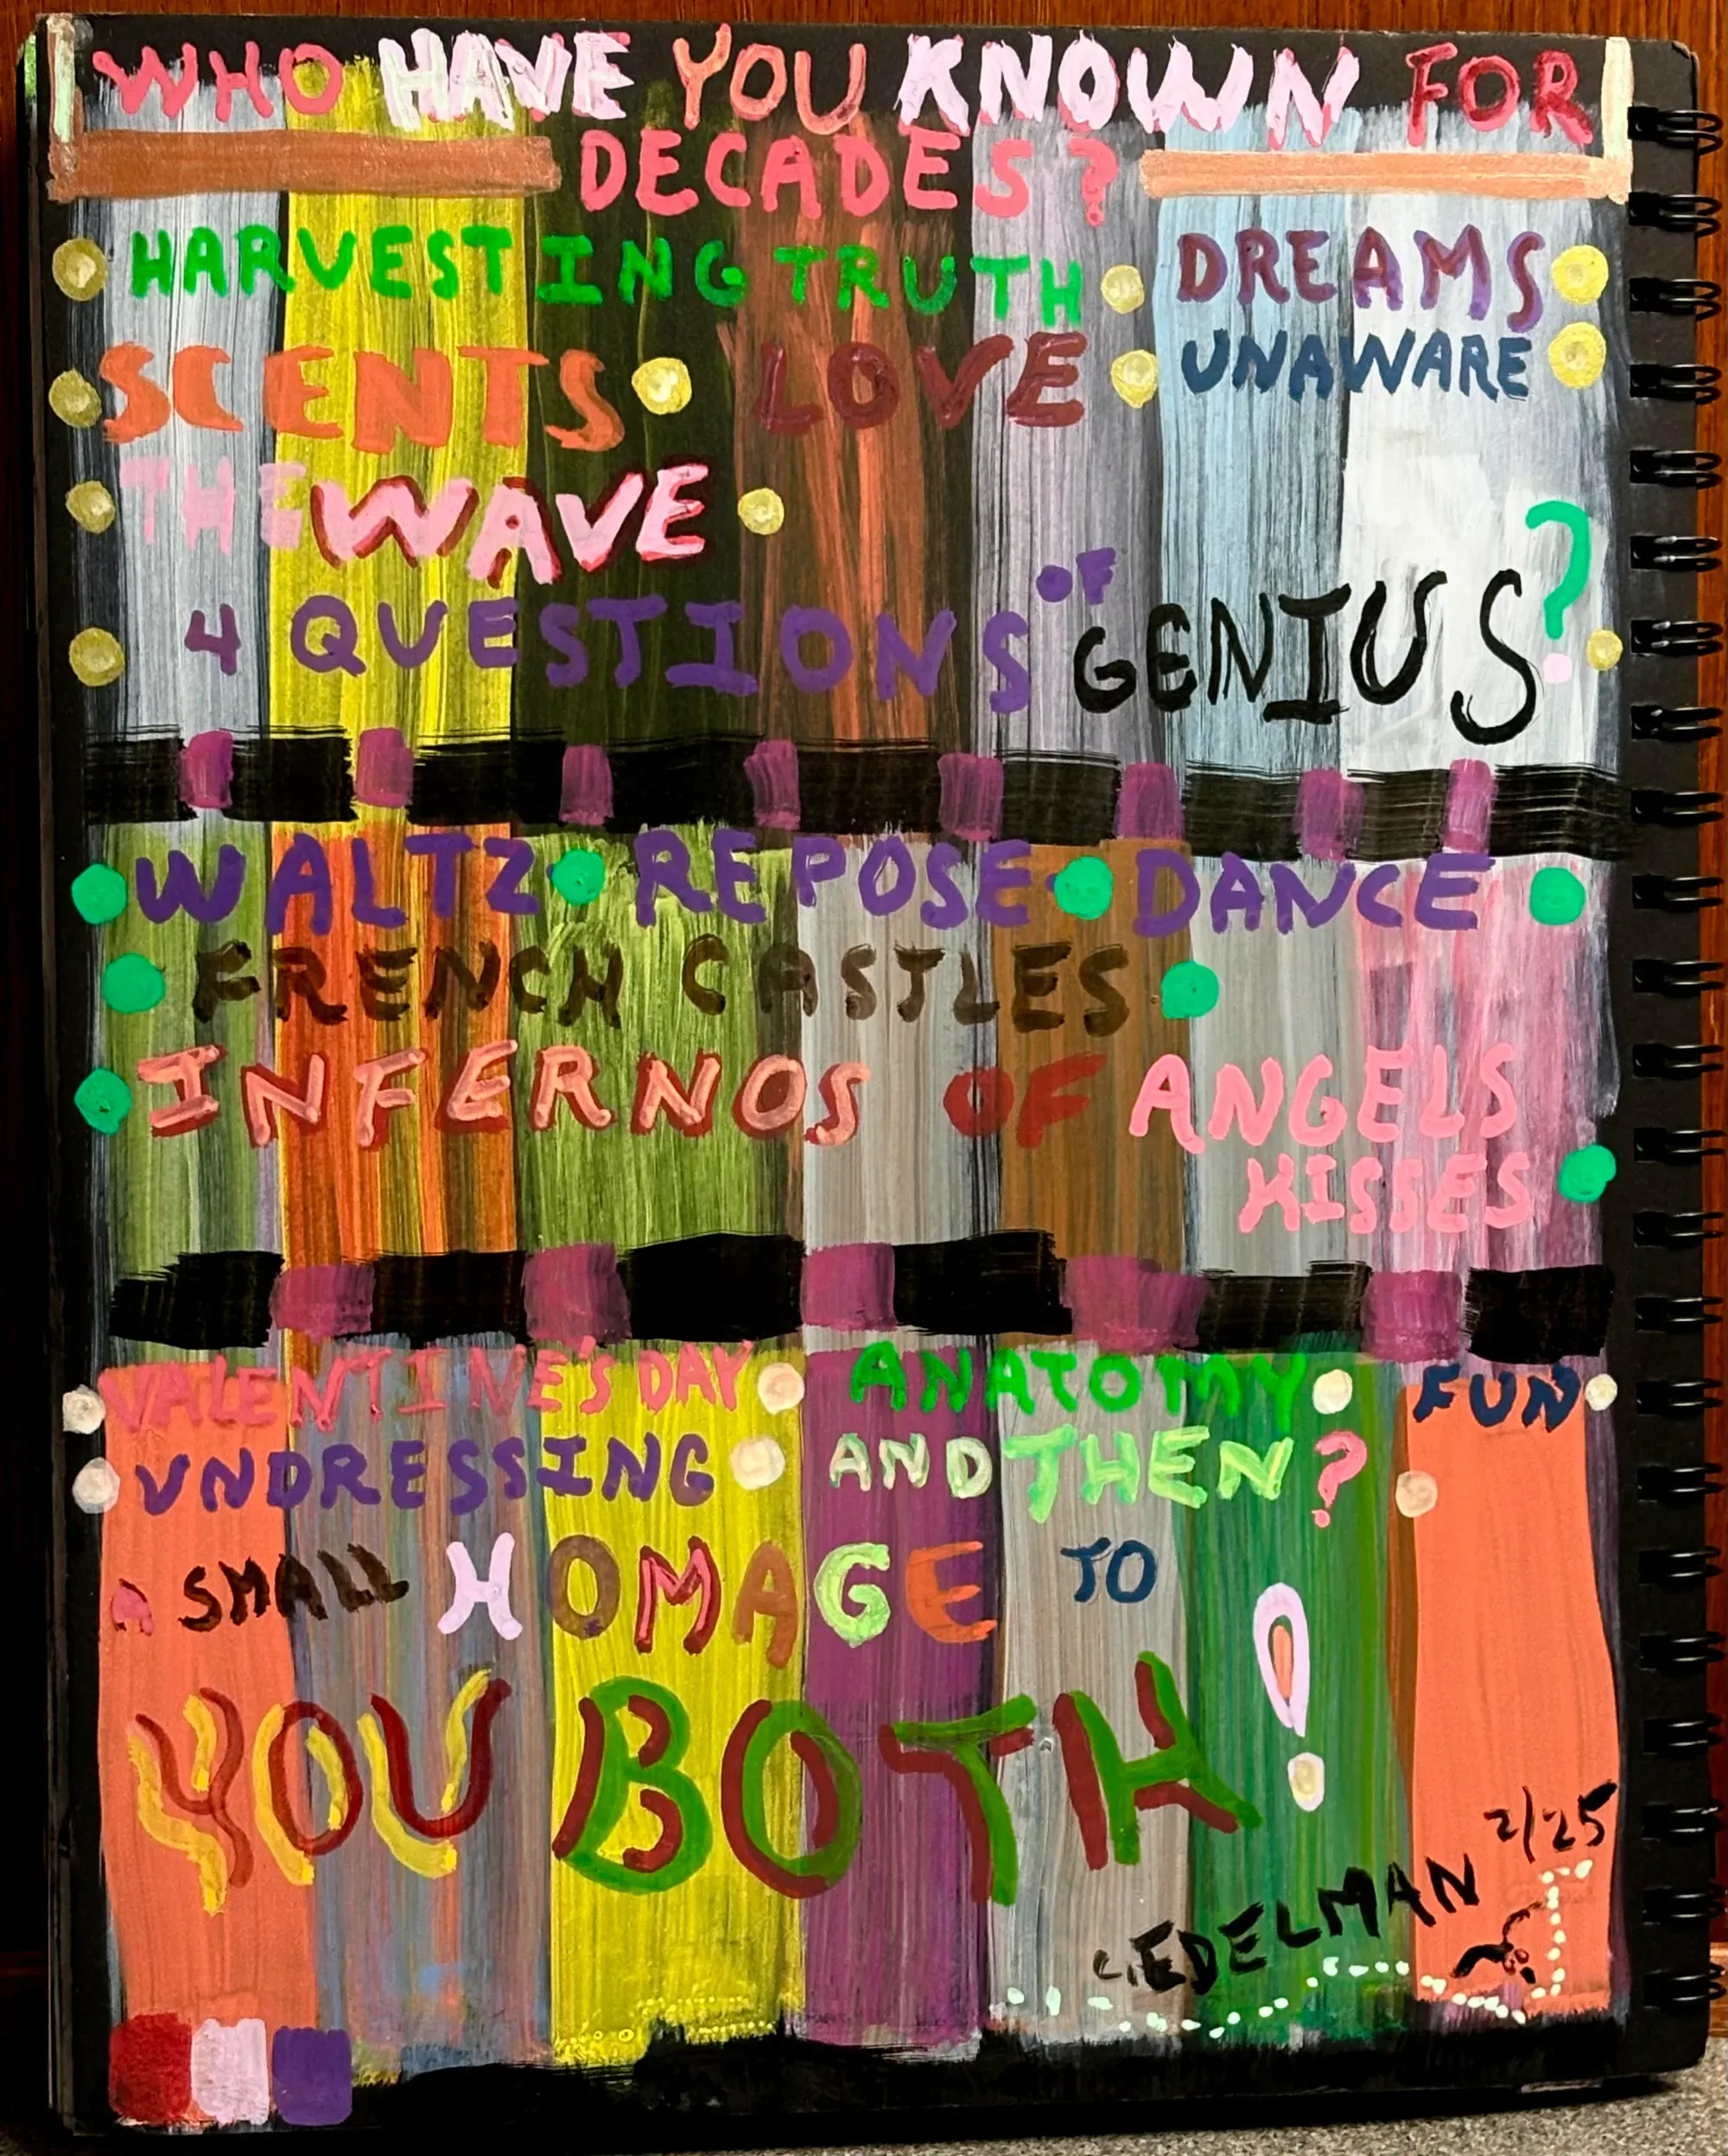 WHO HAVE YOU KNOWN FOR
DECADES?
HARVESTING TRUTH • DREAMS
SCENTS • LOVE • UNAWARE
THE WAVE
4 QUESTIONS OF GENIUS?
WALTZ • REPOSE • DANCE
FRENCH CASTLES
INFERNOS OF ANGELS
KISSES
VALENTINE'S DAY • ANATOMY • FUN
UNDRESSING • AND THEN?
A SMALL HOMAGE TO
YOU BOTH!
2/25
L. EDELMAN